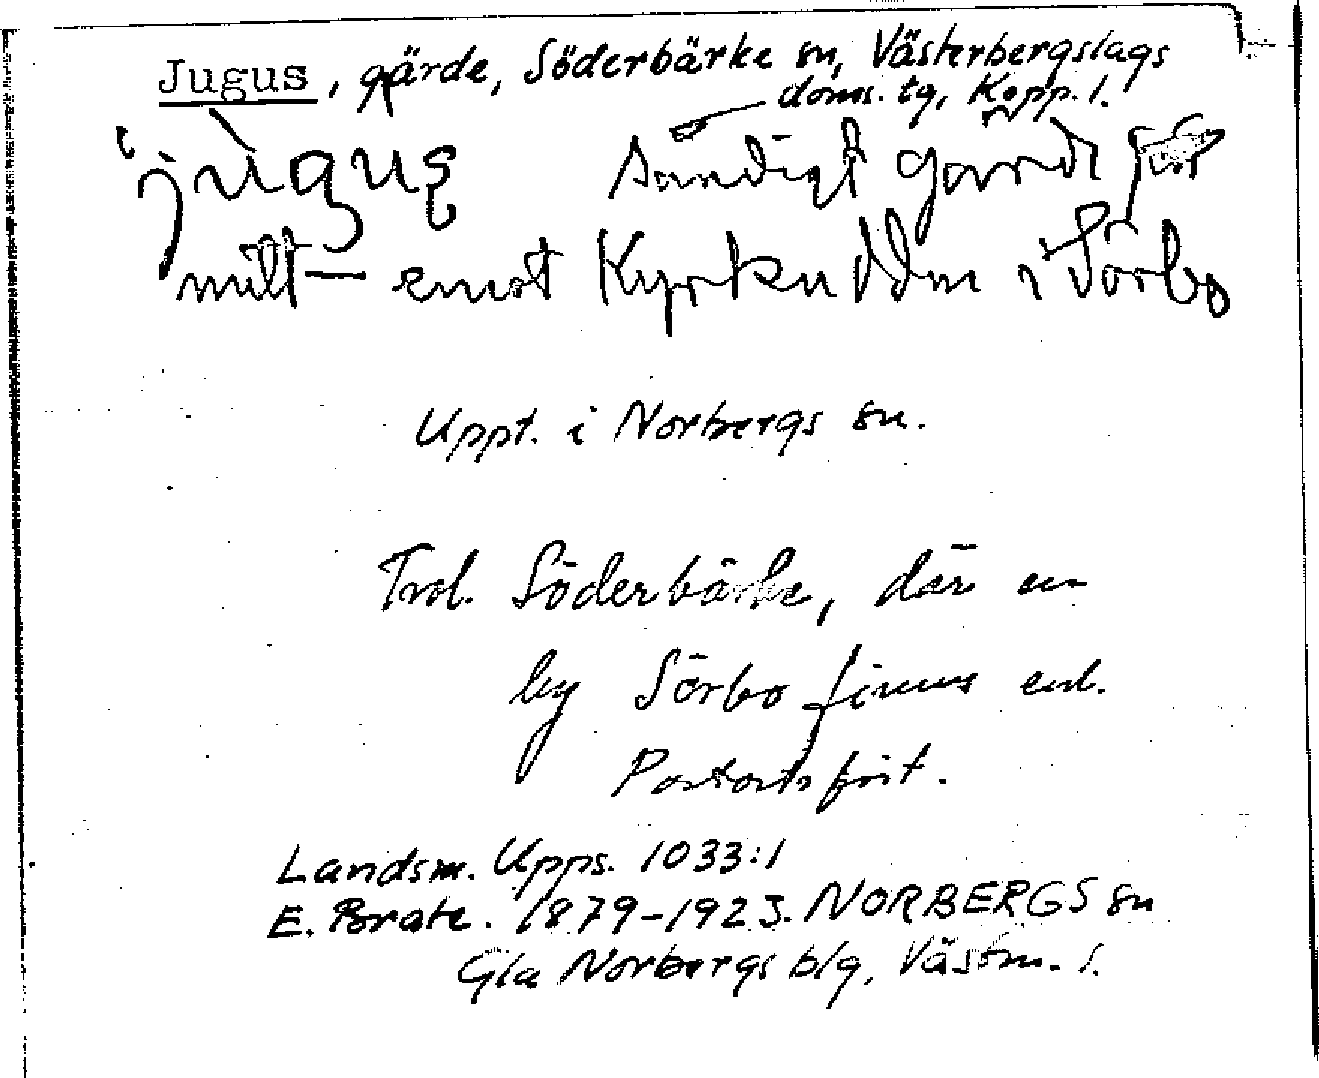 Jugus, gärde, Söderbärke sn, Västerbergslags
doms. tg, Kopp. l.
jùgus sandigt gärde
mitt emot Kyrkudden i Sörbo
Uppt. i Norbergs sn.
Trol. Söderbärke, där en
by Sörbo finns enl.
Postortsfört.
Landsm. Upps. 1033:1
E. Brate. 1879-1923. NORBERGS sn
Gla Norbergs blg, Västm. l.